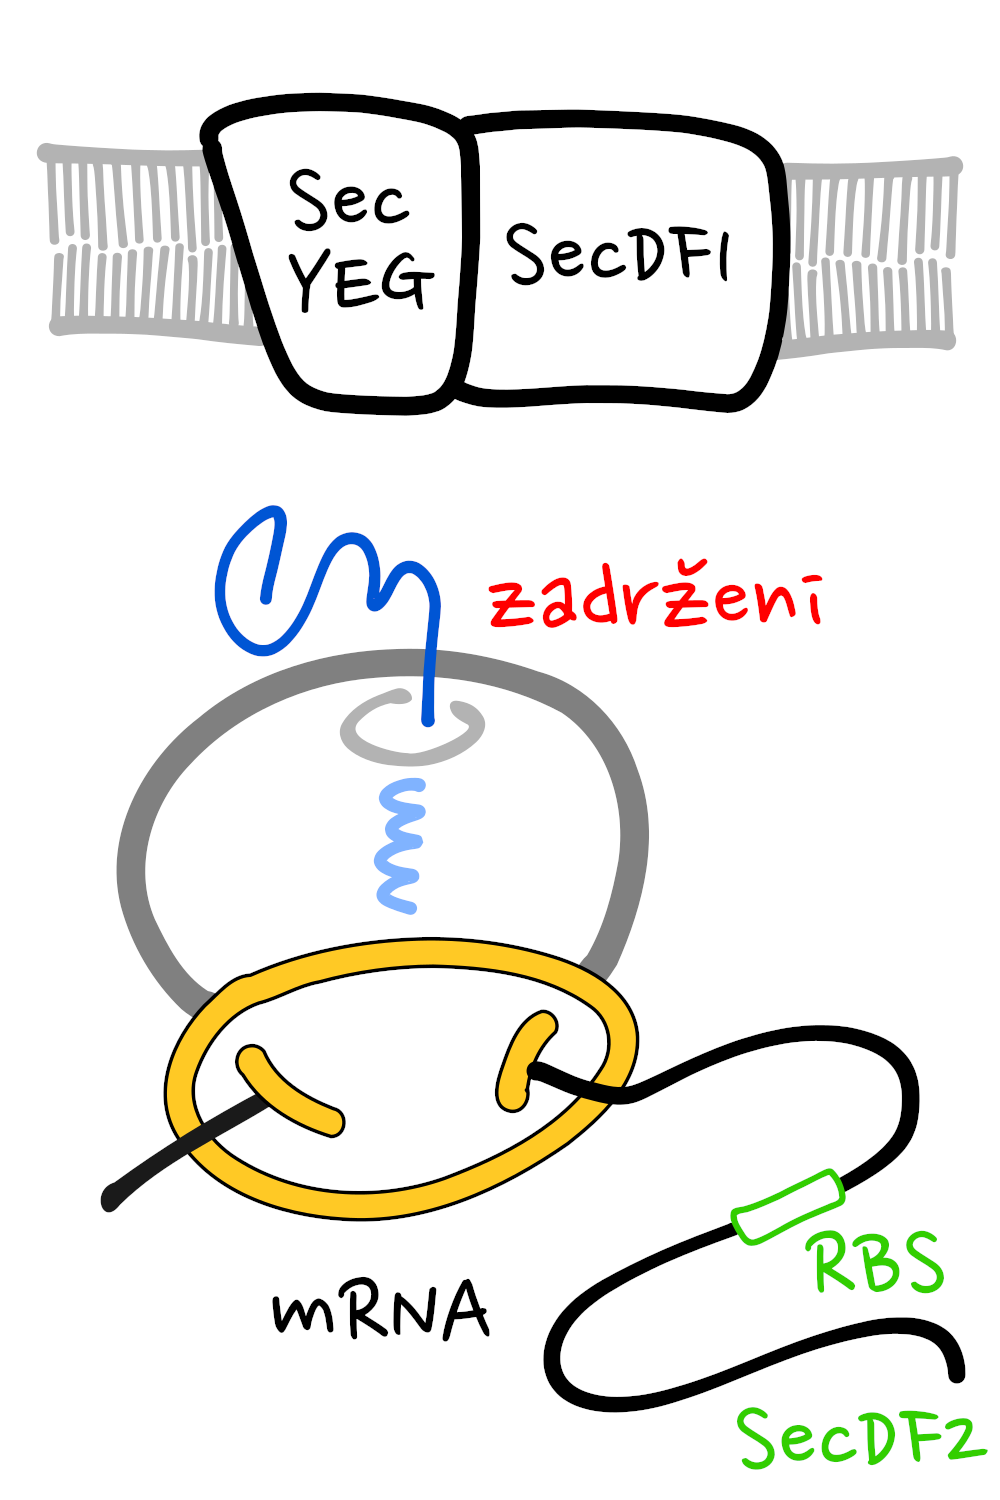 Sec
YEG
SecDF1
zadržení
RBS
mRNA
SecDF2